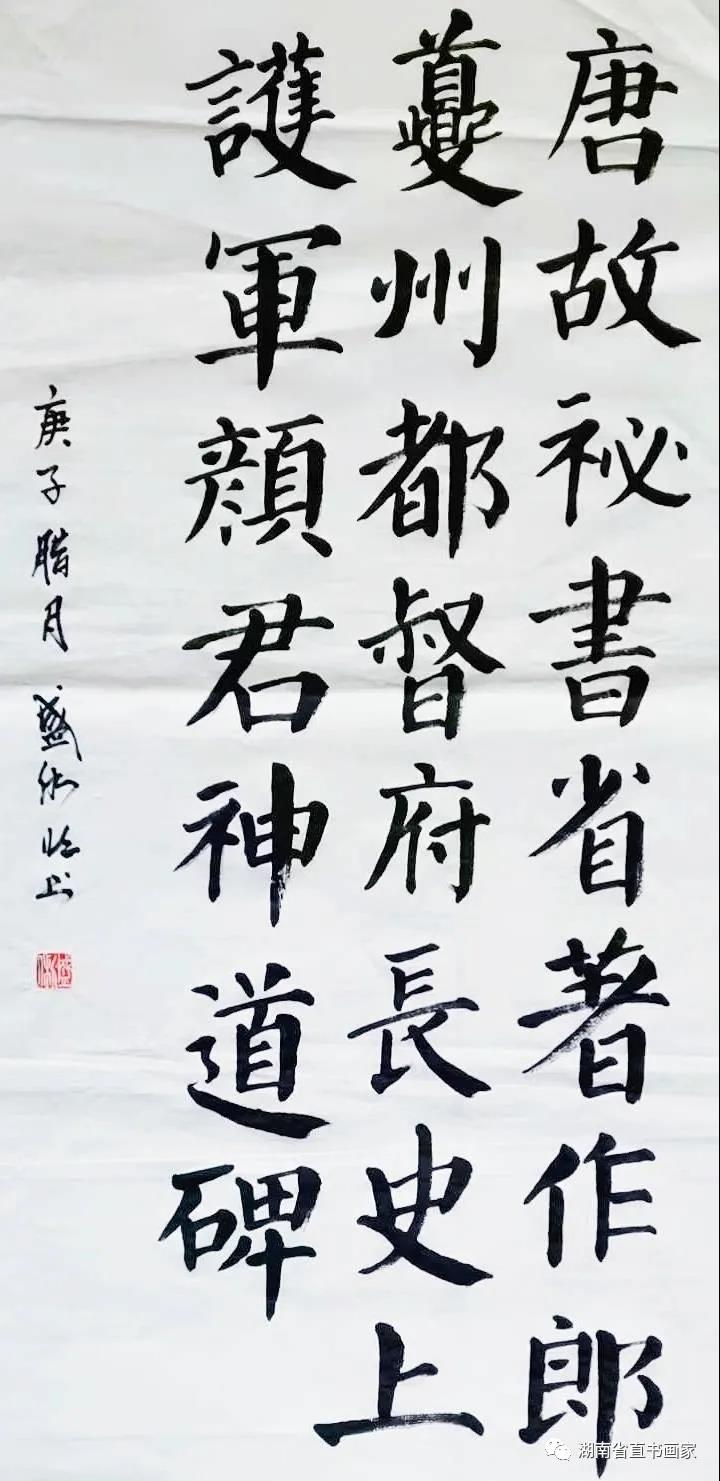 唐故祕書省著作郎
夔州都督府長史上
護軍顔君神道碑
庚子腊月盛臨書
湖南省直书画家